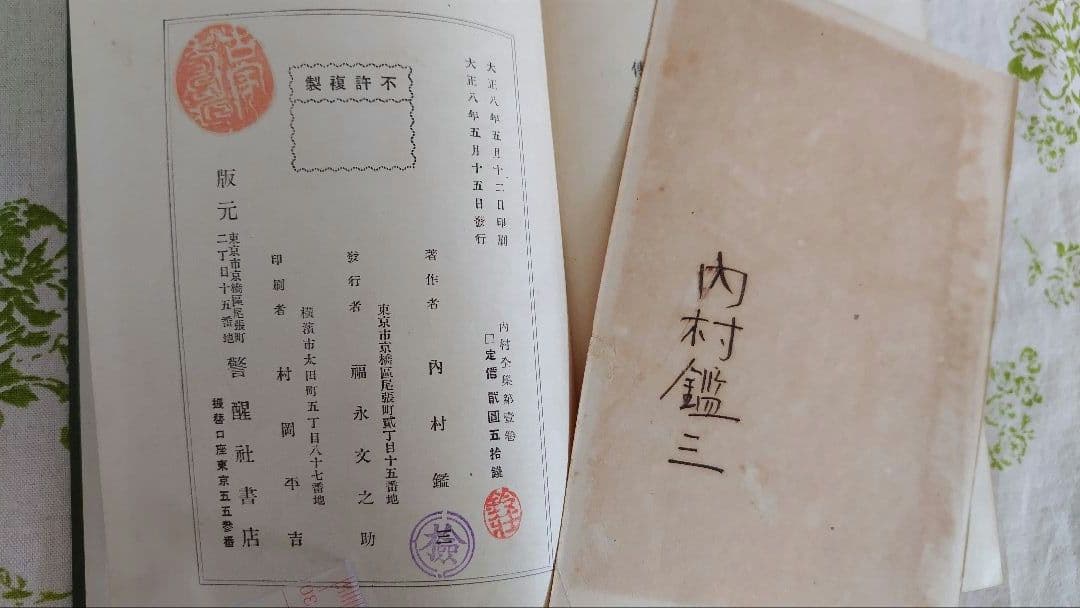 不許複製
大正八年五月十二日印刷
大正八年五月十五日發行
內村全集第壹卷
定價 貳圓五拾錢
著作者 內村鑑三
東京市京橋區尾張町貳丁目十五番地
發行者 福永文之助
橫濱市太田町五丁目八十七番地
印刷者 村岡平吉
版元 東京市京橋區尾張町二丁目十五番地 警醒社書店
振替口座東京五五參番
檢
內村鑑三